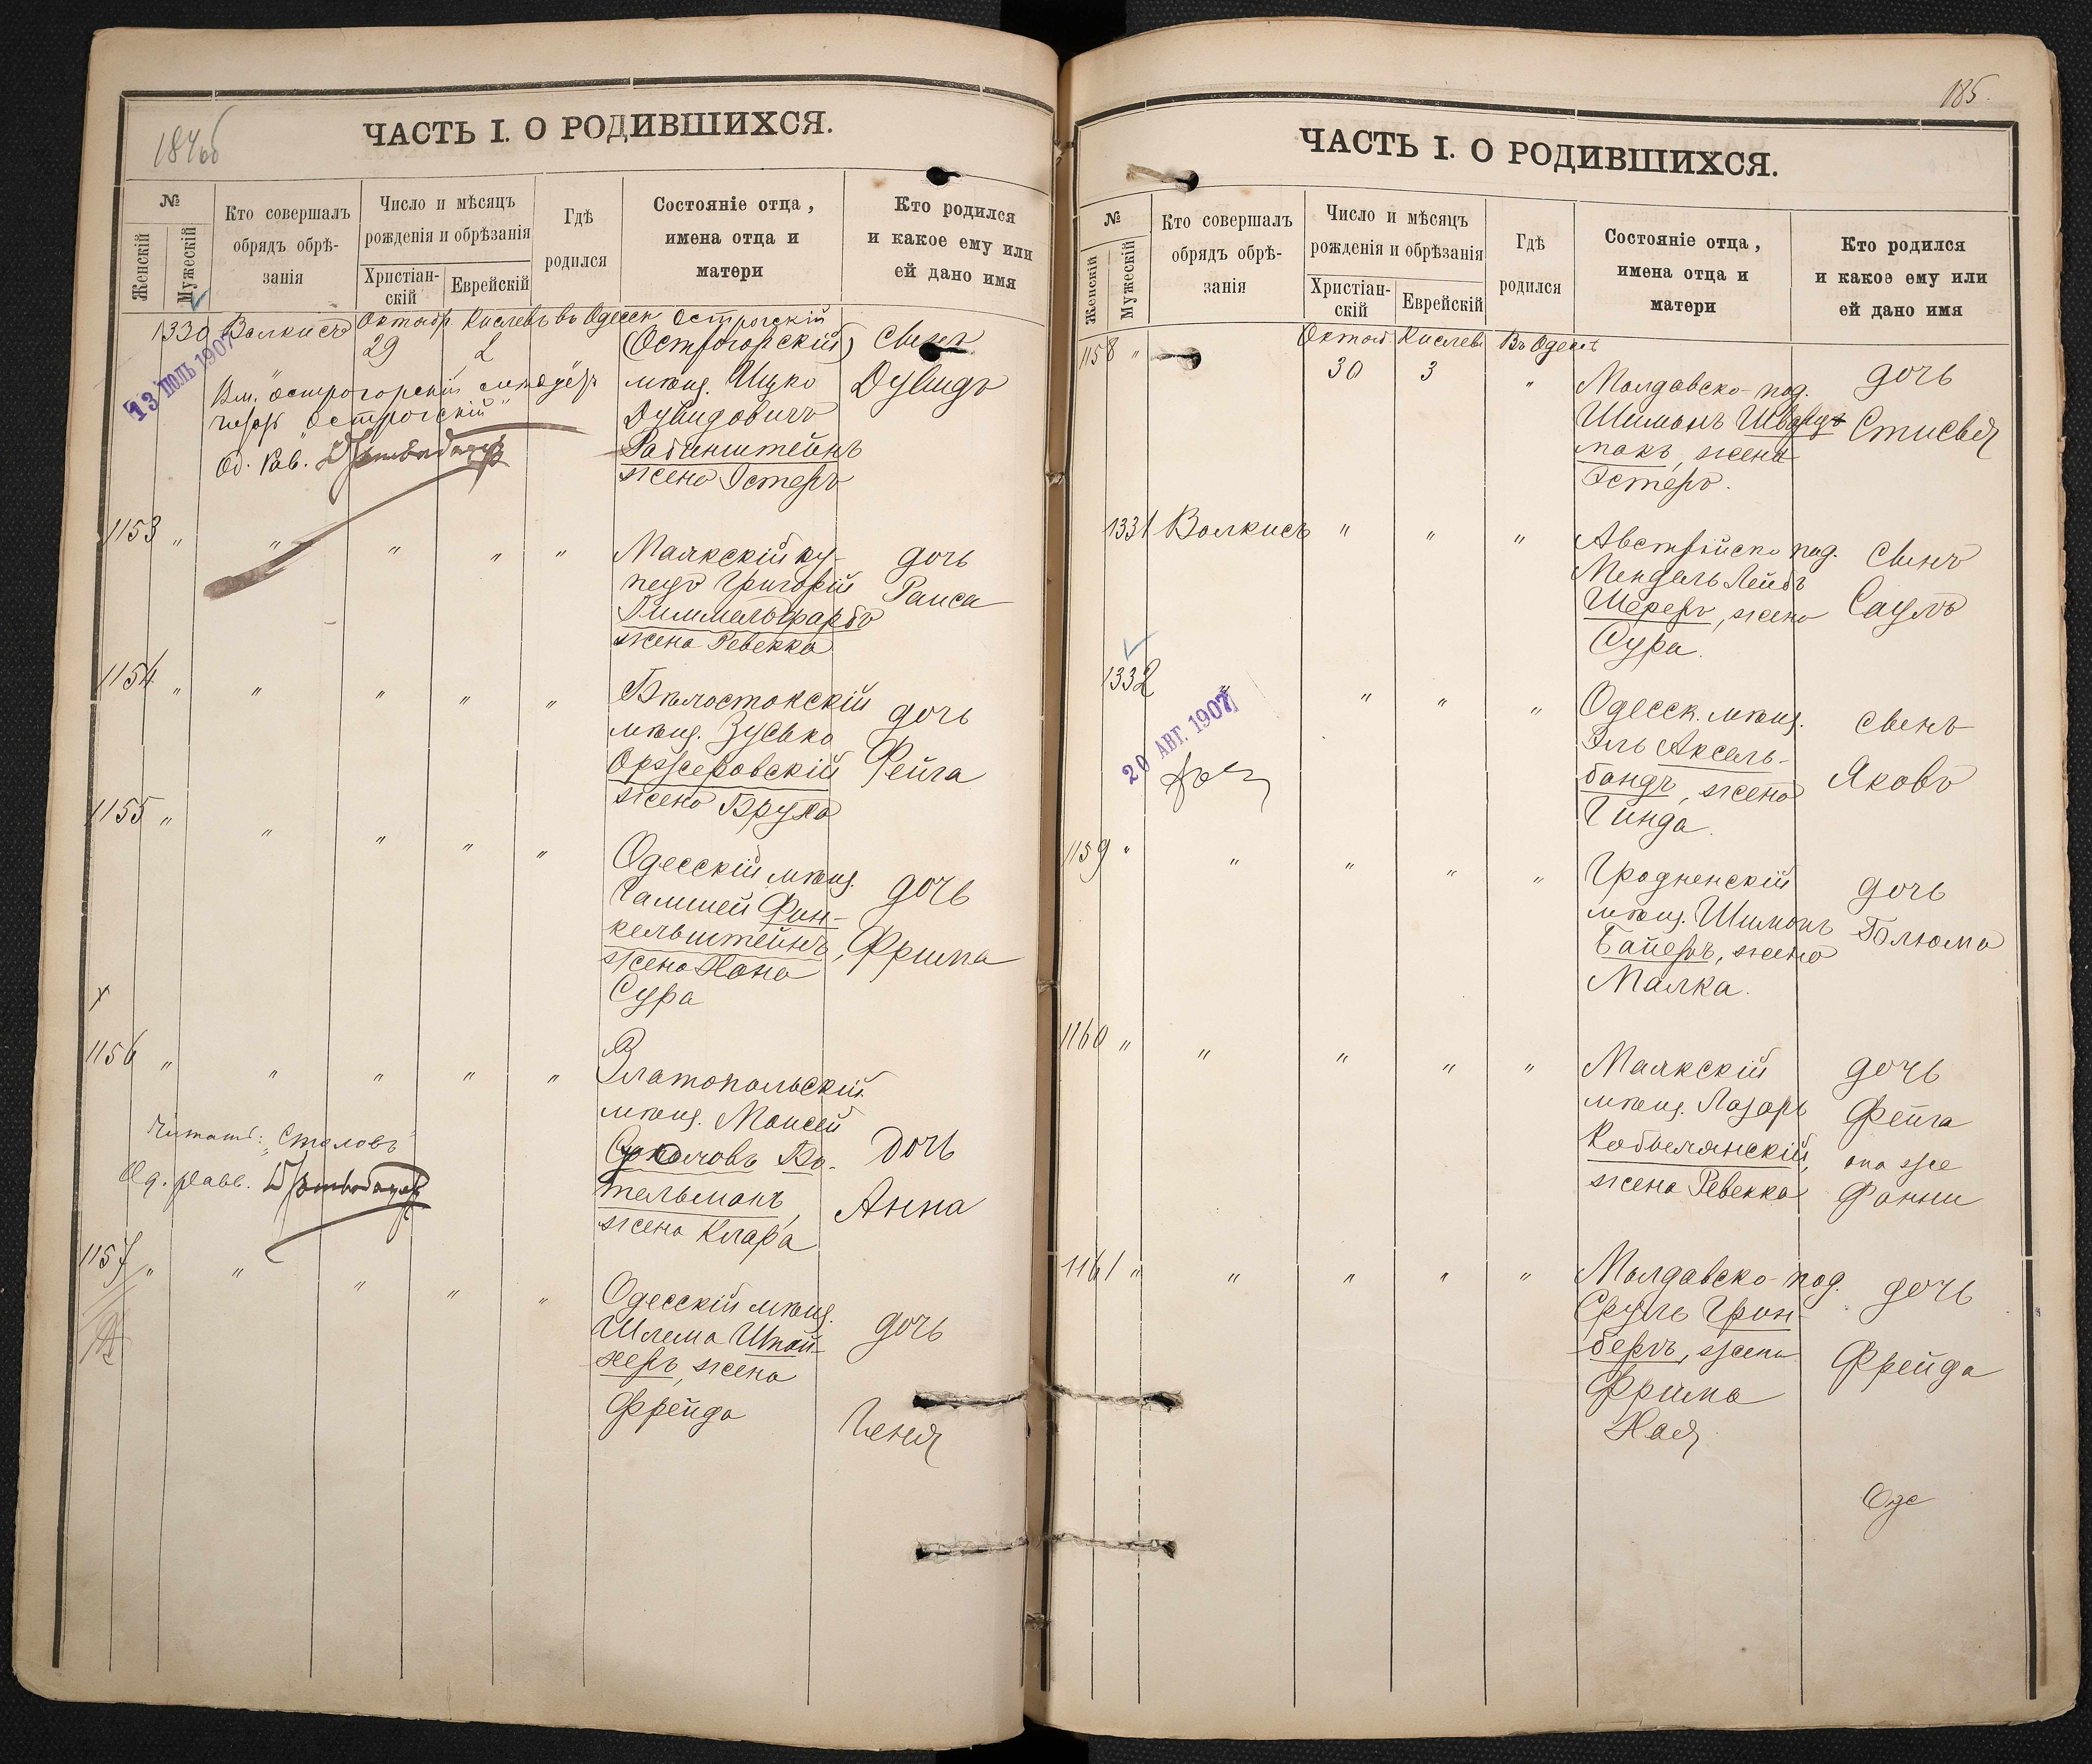 184 об
ЧАСТЬ I. О РОДИВШИХСЯ.
№
Женскій
Мужескій
Кто совершалъ
обрядъ обрѣ-
занія
Число и мѣсяцъ
рожденія и обрѣзанія
Христіан-
скій
Еврейскій
Гдѣ
родился
Состояніе отца,
имена отца и
матери
Кто родился
и какое ему или
ей дано имя
1330 Волкисъ Октябр. Кислевъ въ Одессѣ Острогскій
29 2 (Острогорскій) сынъ
13 ІЮЛЬ 1907
мѣщ. Ицко Дувидъ
Дувидовичъ
Рабинштейнъ
жена Эстеръ
Вм. "Острогорскій" слѣдуетъ
читать "Острогскій"
Од. Рав.
1153 " " " " " Маякскій ку- дочь
пецъ Григорій Раиса
Гиммельфарбъ
жена Ревекка
1154 " " " " " Бѣлостокскій дочь
мѣщ. Зусько
Оржеровскій Фейга
жена Бруха
1155 " " " " " Одесскій мѣщ.
Самшей Фин- дочь
кельштейнъ, Фрима
жена Хана
Сура
х
1156 " " " " " Златопольскій
мѣщ. Моисей
Ко- дочь
тельманъ, Анна
жена Клара
Читать: "Столовъ"
Од. равв.
1157 " " " " " Одесскій мѣщ.
Шлема Шпай- дочь
херъ, жена
Фрейда Геня
185.
ЧАСТЬ I. О РОДИВШИХСЯ.
№
Женскій
Мужескій
Кто совершалъ
обрядъ обрѣ-
занія
Число и мѣсяцъ
рожденія и обрѣзанія
Христіан-
скій
Еврейскій
Гдѣ
родился
Состояніе отца,
имена отца и
матери
Кто родился
и какое ему или
ей дано имя
1158 " Октяб. Кислевъ Въ Одессѣ
30 3 " Молдавско-под. дочь
Шимонъ Шварц-
манъ, жена
Эстеръ.
1331 Волкисъ " " " Австрійско под. сынъ
Мендель Лейбъ
Шереръ, жена Саулъ
Сура.
1332 " " " " Одесск. мѣщ. сынъ
20 АВГ. 1907
Эль Аксель-
бандъ, жена Яковъ
Гинда.
1159 " " " " " Гродненскій дочь
мѣщ. Шимонъ Блюма
Байеръ, жена
Малка.
1160 " " " " " Маякскій дочь
мѣщ. Лазарь Фейга
Кобылянскій, она же
жена Ревекка Фанни
1161 " " " " " Молдавско-под. дочь
Сруль Грин-
бергъ, жена Фрейда
Фрима
Хая